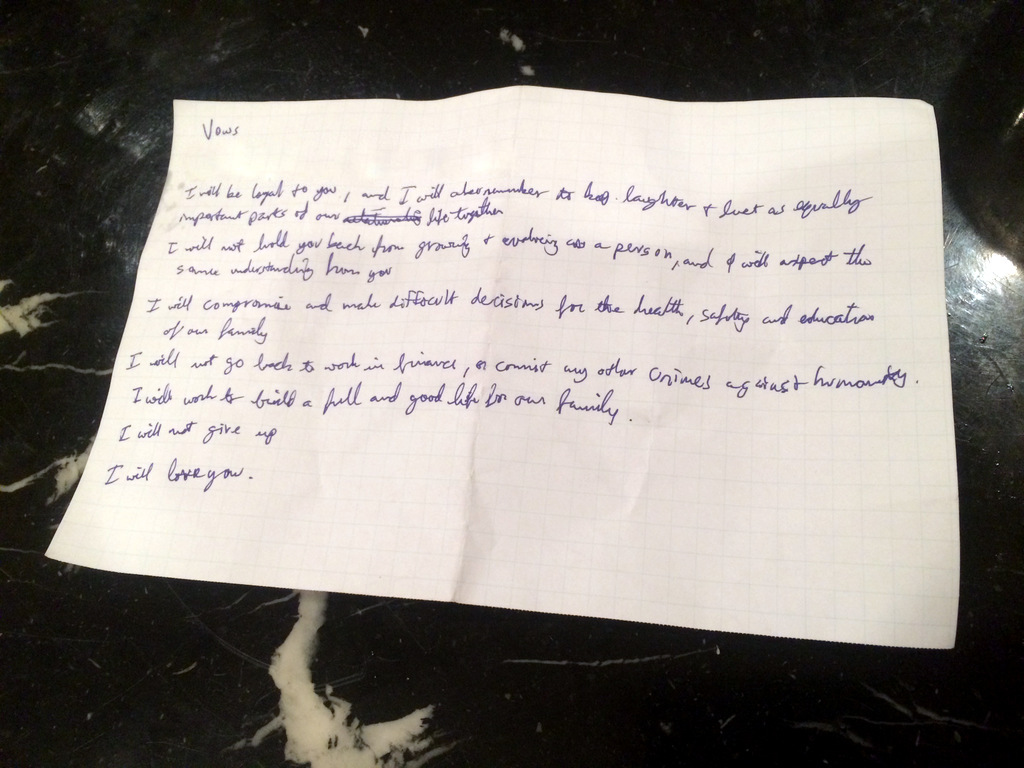 Vows
I will be loyal to you, and I will also remember to keep laughter + lust as equally
important parts of our life together
I will not hold you back from growing + evolving as a person, and I will expect the
same understanding from you
I will compromise and make difficult decisions for the health, safety and education
of our family
I will not go back to work in finance, or commit any other crimes against humanity.
I will work to build a full and good life for our family.
I will not give up
I will love you.